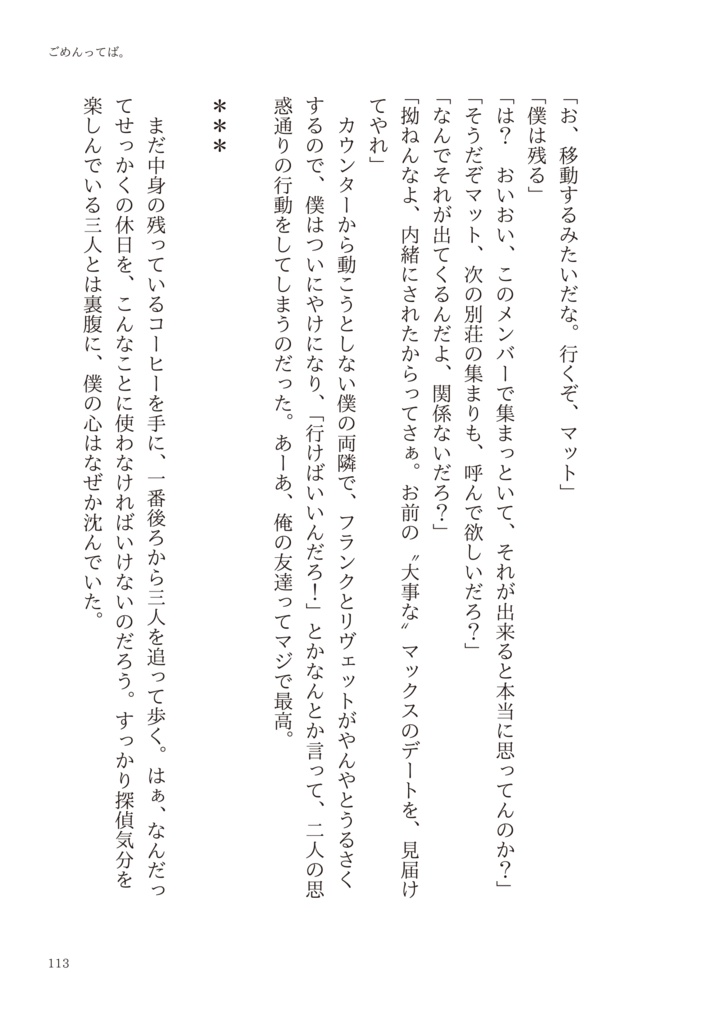 ごめんってば。
「お、移動するみたいだな。行くぞ、マット」
「僕は残る」
「は？　おいおい、このメンバーで集まっといて、それが出来ると本当に思ってんのか？」
「そうだぞマット、次の別荘の集まりも、呼んで欲しいだろ？」
「なんでそれが出てくるんだよ、関係ないだろ？」
「拗ねんなよ、内緒にされたからってさぁ。お前の〝大事な〟マックスのデートを、見届け
てやれ」
　カウンターから動こうとしない僕の両隣で、フランクとリヴェットがやんやとうるさく
するので、僕はついにやけになり、「行けばいいんだろ！」とかなんとか言って、二人の思
惑通りの行動をしてしまうのだった。あーあ、俺の友達ってマジで最高。
＊＊＊
　まだ中身の残っているコーヒーを手に、一番後ろから三人を追って歩く。はぁ、なんだっ
てせっかくの休日を、こんなことに使わなければいけないのだろう。すっかり探偵気分を
楽しんでいる三人とは裏腹に、僕の心はなぜか沈んでいた。
113